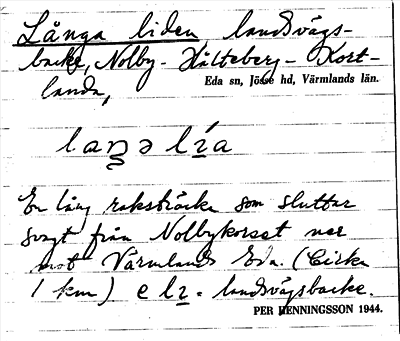 Långa liden landsvägs-
backe, Nolby - Hälteberg - Kort-
landa,
Eda sn, Jösse hd, Värmlands län.
En lång raksträcka som sluttar
svagt från Nolbykorset ner
mot Värmlands Eda. (Cirka
1 km) = landsvägsbacke.
PER HENNINGSSON 1944.